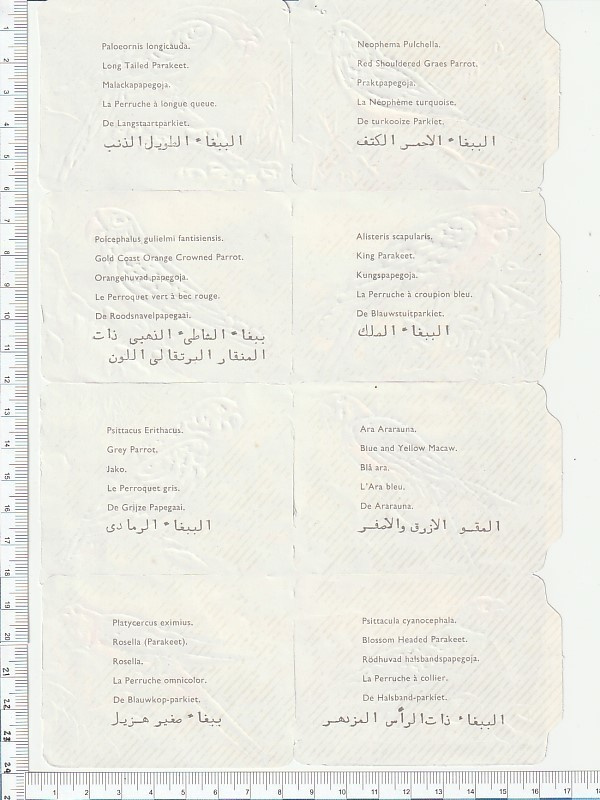 Paloeornis longicauda.
Long Tailed Parakeet.
Malackapapegoja.
La Perruche à longue queue.
De Langstaartparkiet.
الببغاء الطويل الذنب
Neophema Pulchella.
Red Shouldered Graes Parrot.
Praktpapegoja.
La Néophème turquoise.
De turkooize Parkiet.
الببغاء الاحمر الكتف
Poicephalus gulielmi fantisiensis.
Gold Coast Orange Crowned Parrot.
Orangehuvad papegoja.
Le Perroquet vert à bec rouge.
De Roodsnavelpapegaai.
ببغاء الشاطىء الذهبى ذات
المنقار البرتقالى اللون
Alisteris scapularis.
King Parakeet.
Kungspapegoja.
La Perruche à croupion bleu.
De Blauwstuitparkiet.
الببغاء الملك
Psittacus Erithacus.
Grey Parrot.
Jako.
Le Perroquet gris.
De Grijze Papegaai.
الببغاء الرمادى
Ara Ararauna.
Blue and Yellow Macaw.
Blå ara.
L'Ara bleu.
De Ararauna.
المقو الازرق والاصفر
Platycercus eximius.
Rosella (Parakeet).
Rosella.
La Perruche omnicolor.
De Blauwkop-parkiet.
ببغاء صغير هزيل
Psittacula cyanocephala.
Blossom Headed Parakeet.
Rödhuvad halsbandspapegoja.
La Perruche à collier.
De Halsband-parkiet.
الببغاء ذات الرأس المزدهر
1
2
3
4
5
6
7
8
9
10
11
12
13
14
15
16
17
18
19
20
21
22
23
24
1
2
3
4
5
6
7
8
9
10
11
12
13
14
15
16
17